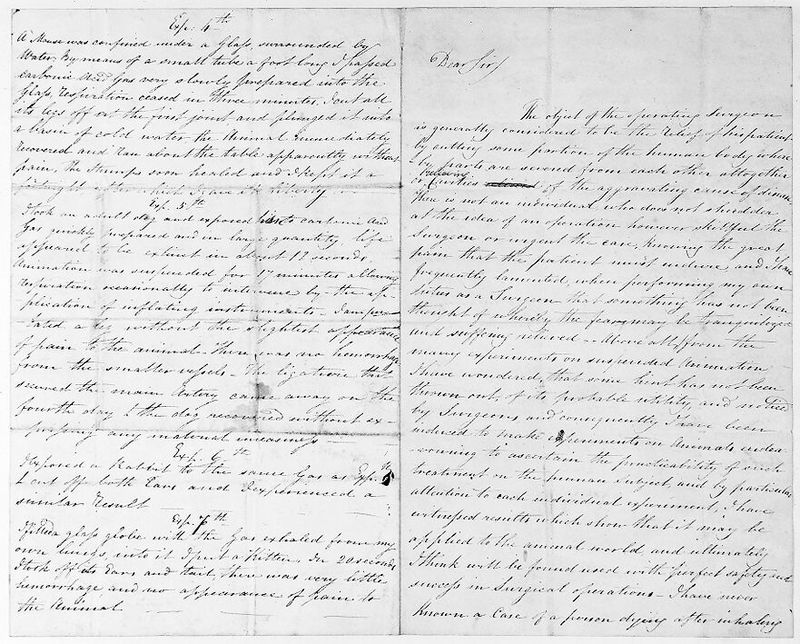 Exp: 4th
A Mouse was confined under a Glass, surrounded by
Water, By means of a small tube a foot long I passed
carbonic Acid Gas very slowly prepared into the
Glass, Respiration ceased in three minutes, I cut all
its legs off at the first joint and plunged it into
a basin of cold water the Animal immediately
recovered and ran about the table apparently without
pain, the Stumps soon healed and I kept it a
fortnight after which I gave it its liberty
Exp. 5th
I took an adult dog and exposed him to carbonic Acid
Gas quickly prepared and in large quantity life
appeared to be extinct in about 12 seconds.
Animation was suspended for 17 minutes allowing
respiration occasionally to intervene by the ap-
plication of inflating instruments. I ampu-
tated a leg without the slightest appearance
of pain to the animal. There was no hemorrhage
from the smaller vessels. The ligature that
secured the main Artery came away on the
fourth day & the dog recovered without ex-
pressing any material uneasiness
Exp. 6th
I exposed a Rabbit to the same Gas as Exp. 5th
I cut off both Ears and I experienced a
similar Result
Exp. 7th
I filled a glass globe with the Gas exhaled from my
own lungs, into it I put a Kitten. In 20 seconds
I took off its Ears and tail, there was very little
hemorrhage and no appearance of pain to
the Animal
Dear Sir
The object of the operating Surgeon
is generally considered to be the relief of his patient
by cutting some portion of the human body where-
by parts are severed from each other altogether
or relieving cavities of the aggravating cause of disease
There is not an individual who does not shudder
at the idea of an operation however skilful the
Surgeon or urgent the case, knowing the great
pain that the patient must endure, and I have
frequently lamented, when performing my own
duties as a Surgeon that something has not been
thought of whereby the fears may be tranquilized
and suffering relieved. Above all, from the
many experiments on suspended Animation
I have wondered, that some hint has not been
thrown out, of its probable utility, and noticed
by Surgeons, and consequently I have been
induced to make experiments on Animals endea-
vouring to ascertain the practicability of such
treatment on the human subject, and by particular
attention to each individual experiment, I have
witnessed results which show that it may be
applied to the animal world and ultimately
I think will be found used with perfect safety and
success in Surgical operations - I have never
known a Case of a person dying after inhaling